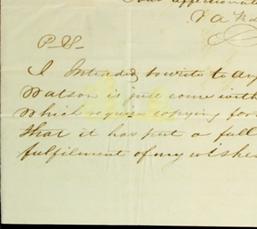 Your affectionate
P.S-
I Intended to write to
Watson is just come with
which require copying for
that it has put a full
fulfilment of my wishes